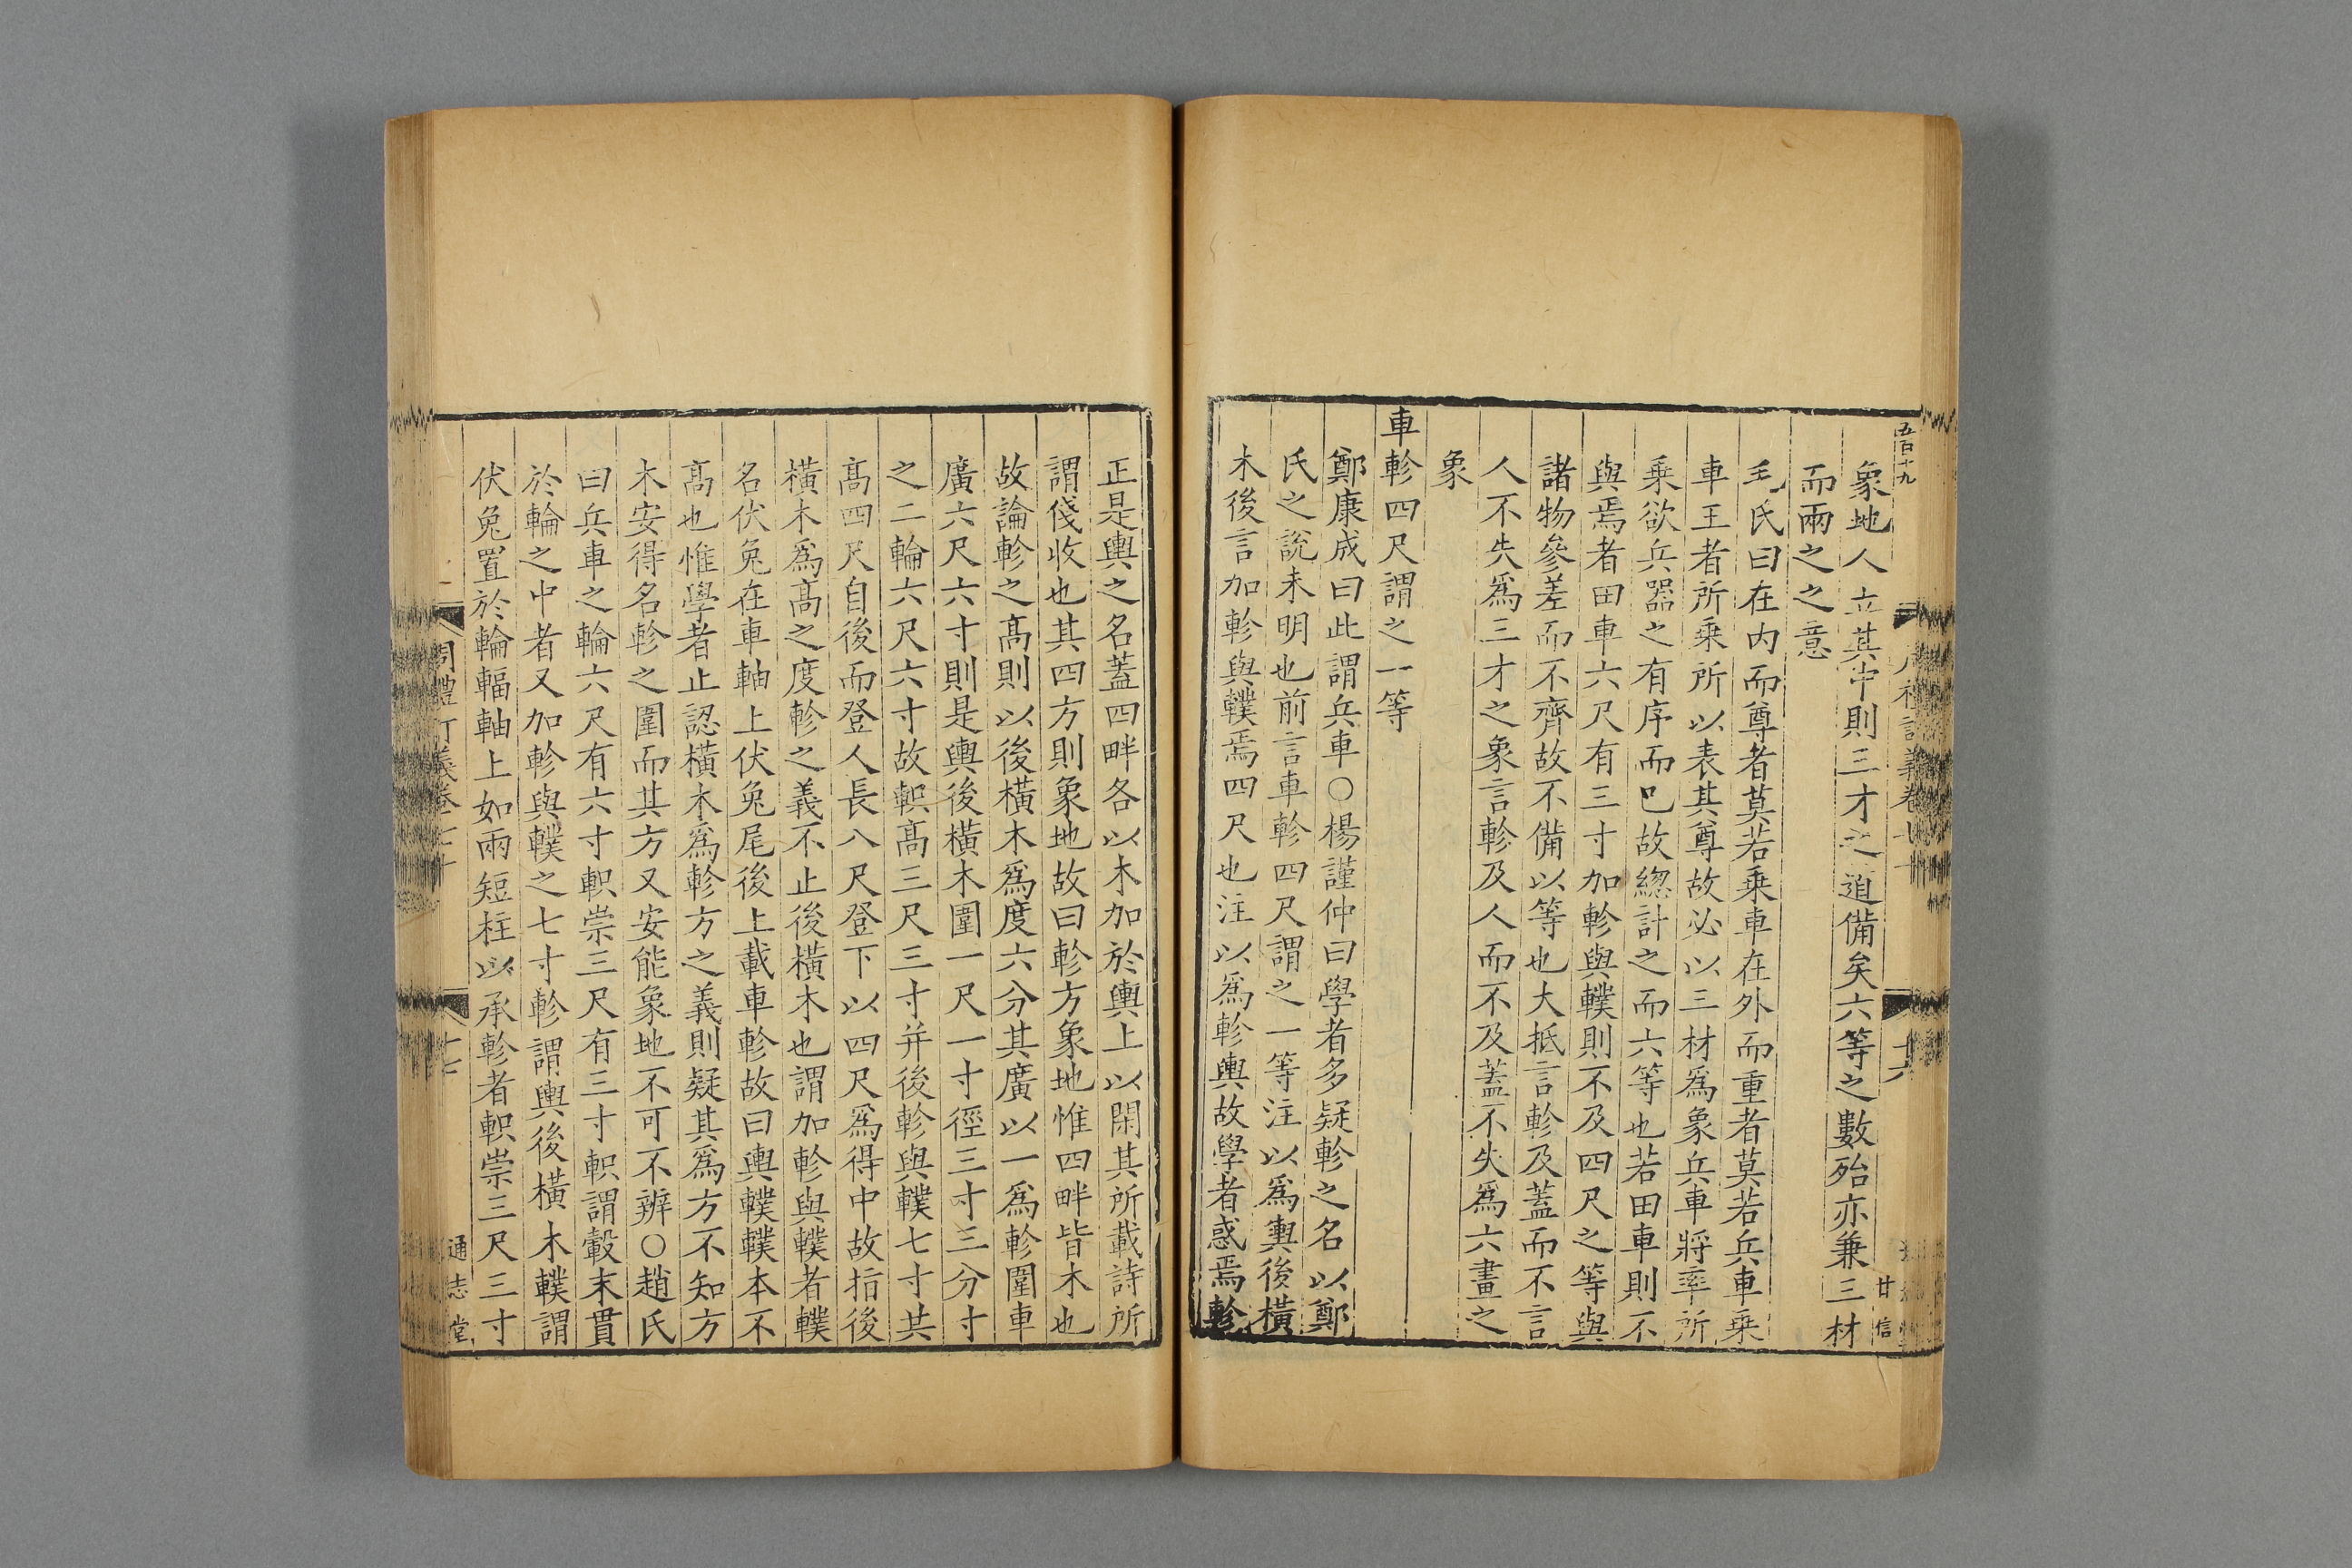 五百十九
象地人立其中則三才之道備矣六等之數殆亦兼三材
而兩之之意
毛氏曰在内而尊者莫若乘車在外而重者莫若兵車乘
車王者所乘所以表其尊故必以三材爲象兵車將率所
乘欲兵器之有序而已故總計之而六等也若田車則不
與焉者田車六尺有三寸加軫與轐則不及四尺之等與
諸物參差而不齊故不備以等也大抵言軫及蓋而不言
人不失爲三才之象言軫及人而不及蓋不失爲六畫之
象
車軫四尺謂之一等
鄭康成曰此謂兵車○楊謹仲曰學者多疑軫之名以鄭
氏之說未明也前言車軫四尺謂之一等注以爲輿後橫
木後言加軫與轐焉四尺也注以爲軫輿故學者惑焉軫
十六
甘信
正是輿之名蓋四畔各以木加於輿上以閑其所載詩所
謂俴收也其四方則象地故曰軫方象地惟四畔皆木也
故論軫之高則以後橫木爲度六分其廣以一爲軫圍車
廣六尺六寸則是輿後橫木圍一尺一寸徑三寸三分寸
之二輪六尺六寸故軹高三尺三寸并後軫與轐七寸共
高四尺自後而登人長八尺登下以四尺爲得中故指後
橫木爲高之度軫之義不止後橫木也謂加軫與轐者轐
名伏兔在車軸上伏兔尾後上載車軫故曰輿轐轐本不
高也惟學者止認橫木爲軫方之義則疑其爲方不知方
木安得名軫之圍而其方又安能象地不可不辨○趙氏
曰兵車之輪六尺有六寸軹崇三尺有三寸軹謂轂末貫
於輪之中者又加軫與轐之七寸軫謂輿後橫木轐謂
伏兔置於輪輻軸上如兩短柱以承軫者軹崇三尺三寸
周禮訂義卷七十
十七
通志堂